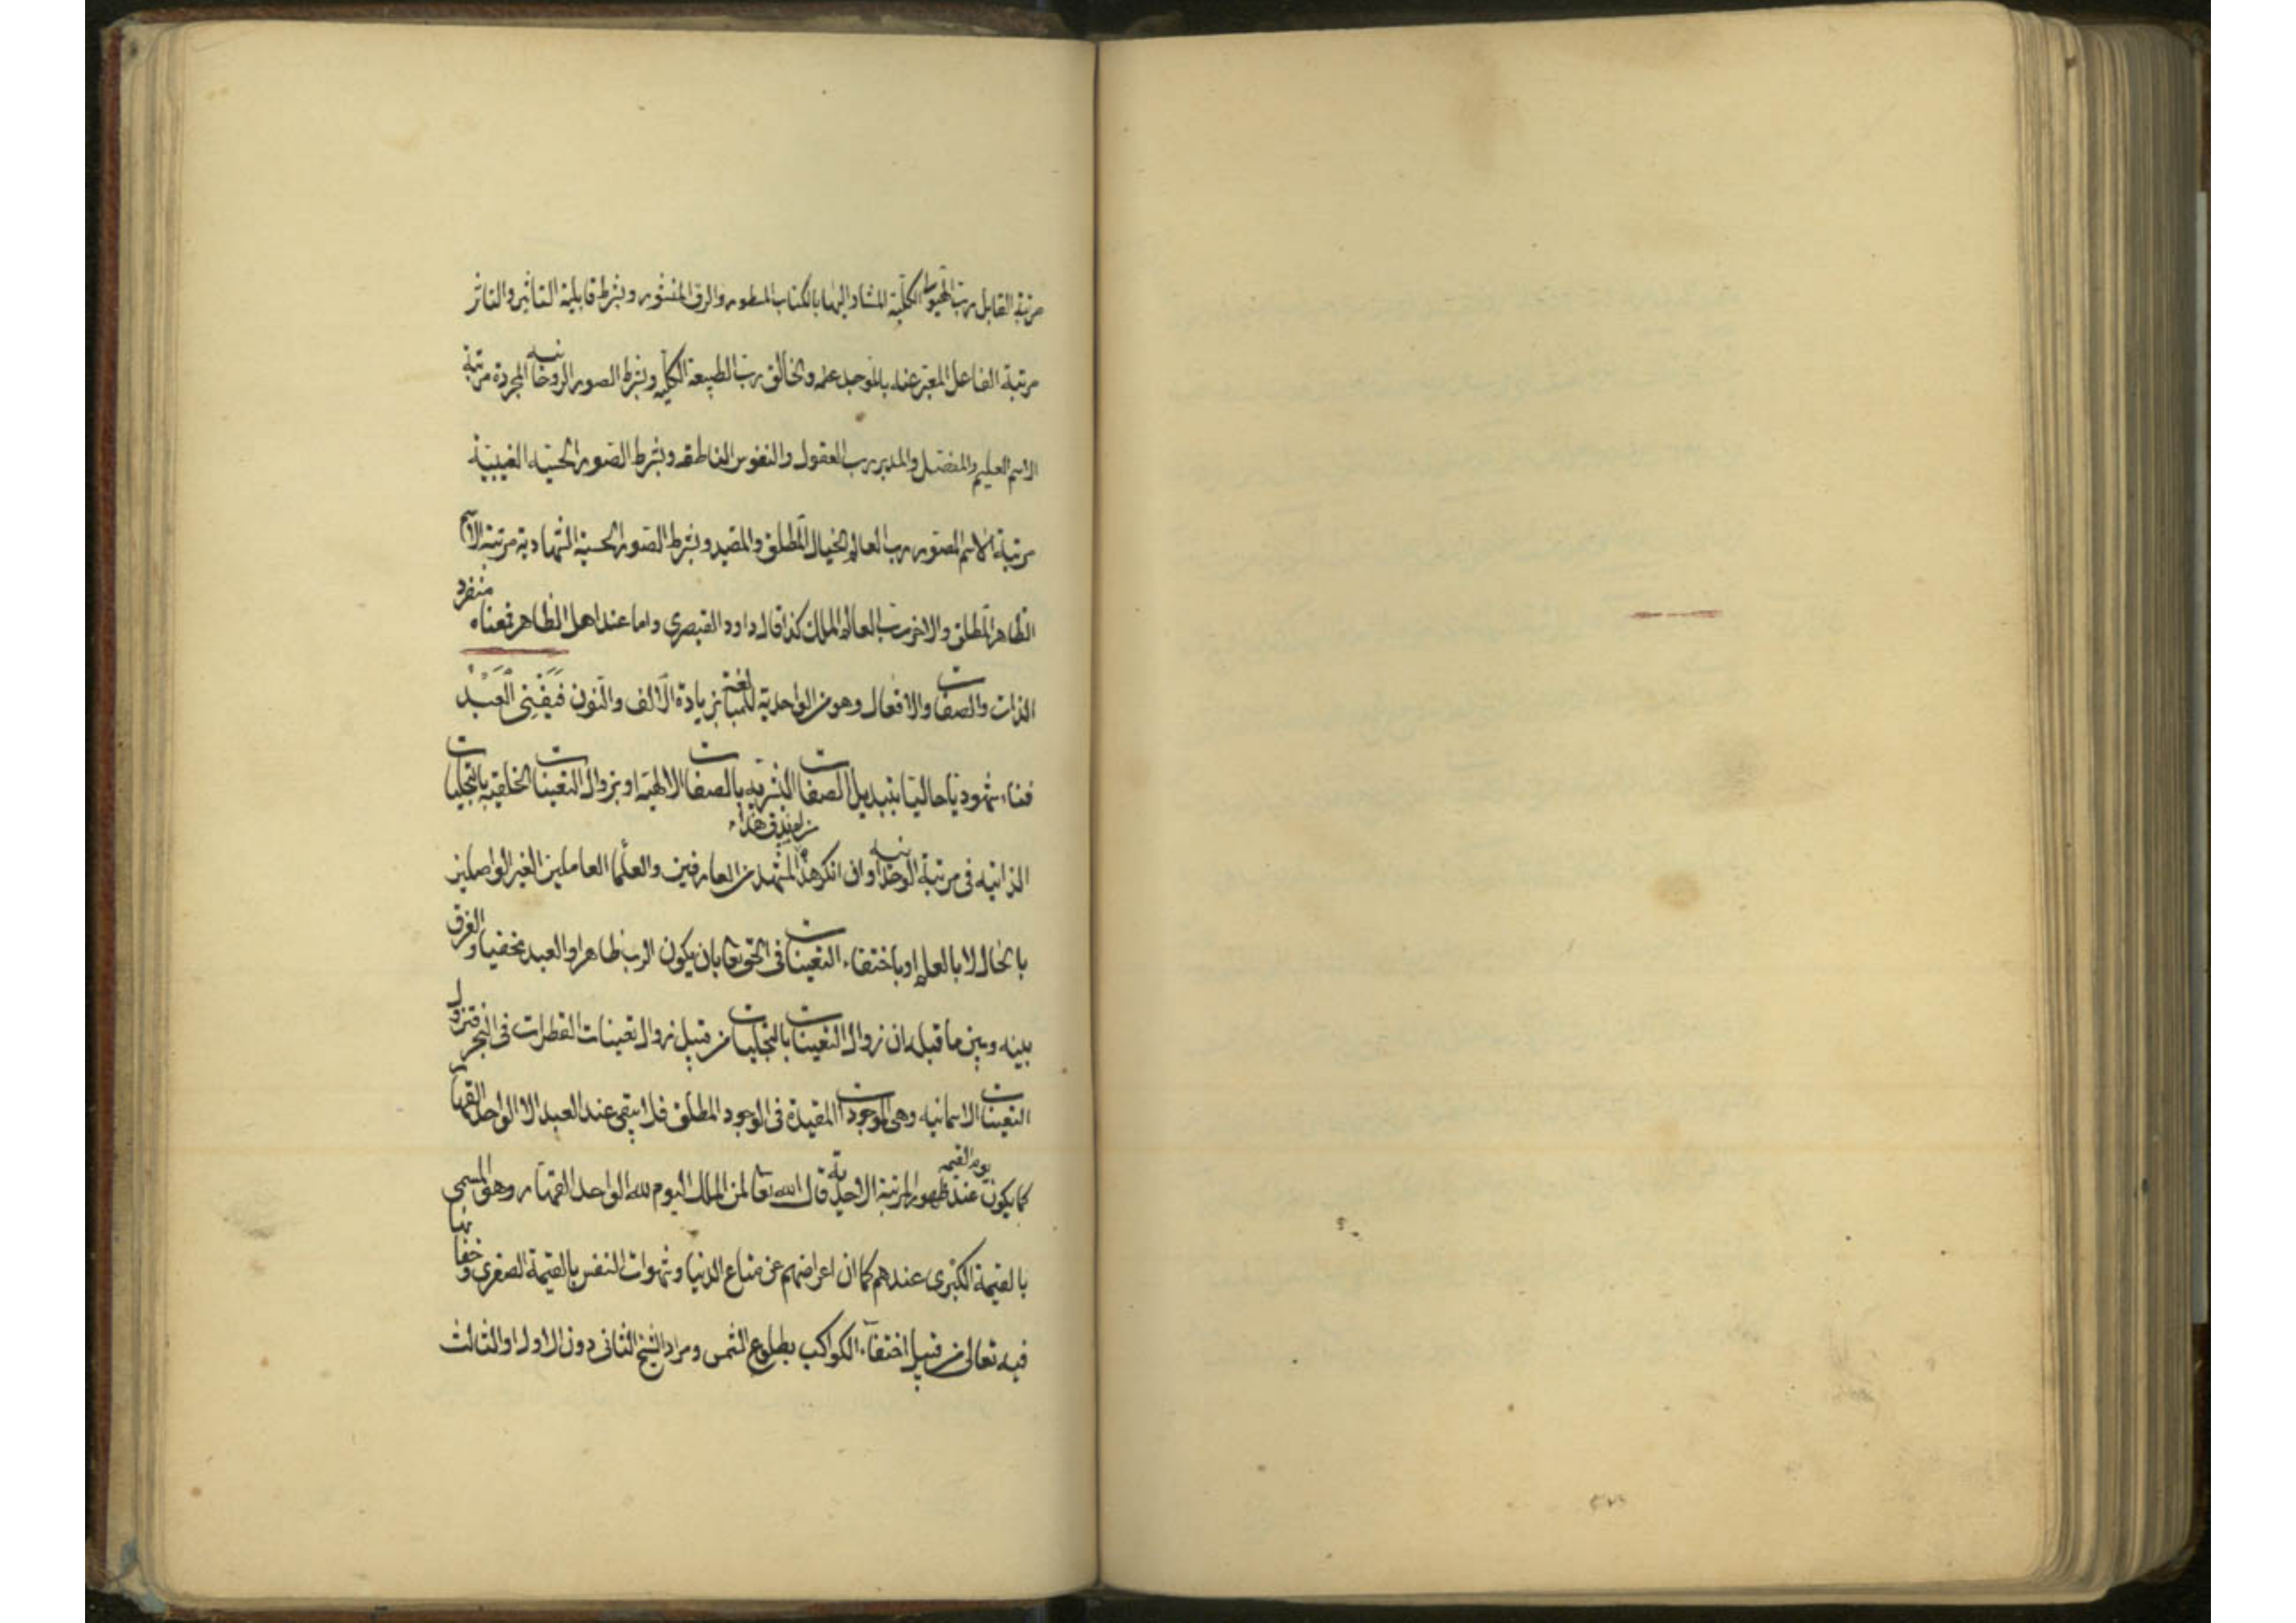 مرتبة القابل رب الهيولى الكلية المشار اليها بالكتاب المسطور والرق المنشور وبشرط قابلية التاثير والتاثر
مرتبة الفاعل المعبر عنه بالموجد والخالق رب الطبيعة الكلية وبشرط الصور الروحانية المجردة مرتبة
الاسم العليم والمفصل والمدبر رب العقول والنفوس الناطقه وبشرط الصور الحسيه الغيبية
مرتبة الاسم المصور رب العالم الخيال المطلق والمقيد وبشرط الصور الحسية الشهادية مرتبة الاسم
الظاهر المطلق والاخر رب العالم الملك كذا قال داود القيصري واما عند اهل الظاهر فمعناه منفرد
الذات والصفات والافعال وهو من الواحدية للمبالغة بزيادة الالف والنون فَيَفْنى الْعَبْدُ
فناء شهوديا حاليا بتبديل الصفات البشريه بالصفات الالهية او بزوال التعينات الخلقيه بالتجليات
الذاتيه فى مرتبة الوحدانيه وان انكر هذا المشهد من العارفين والعلما العاملين الغير الواصلين
بالحال لا بالعلم او باختفاء التعينات فى الحق تعا بان يكون الرب ظاهرا والعبد مخفيا والفرق
بينه وبين ما قبله ان زوال التعينات بالتجليات من قبيل زوال تعينات القطرات فى البحر فتزول
التعينات الاسمائيه وهى الموجودات المقيدة فى الوجود المطلق فلا يبقى عند العبد الا الواحد القهار
كما يكون يوم القيمة عند ظهور المرتبة الاحدية قال الله تعا لمن الملك اليوم لله الواحد القهار وهو المسمى
بالقيمة الكبرى عندهم كما ان اعراضهم عن متاع الدنيا وشهوات النفس بالقيمة الصغرى وخفا
فيه تعالى من قبيل اختفاء الكواكب بطلوع الشمس ومراد الشيخ الثانى دون الاول والثالث